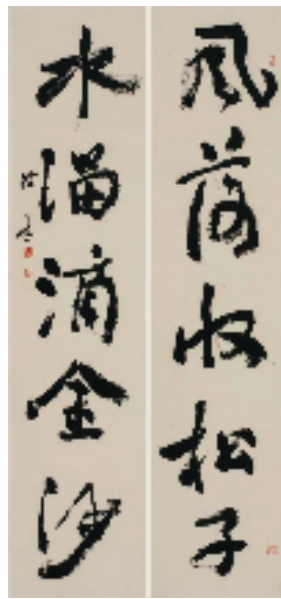 風落收松子
水溜滴金沙